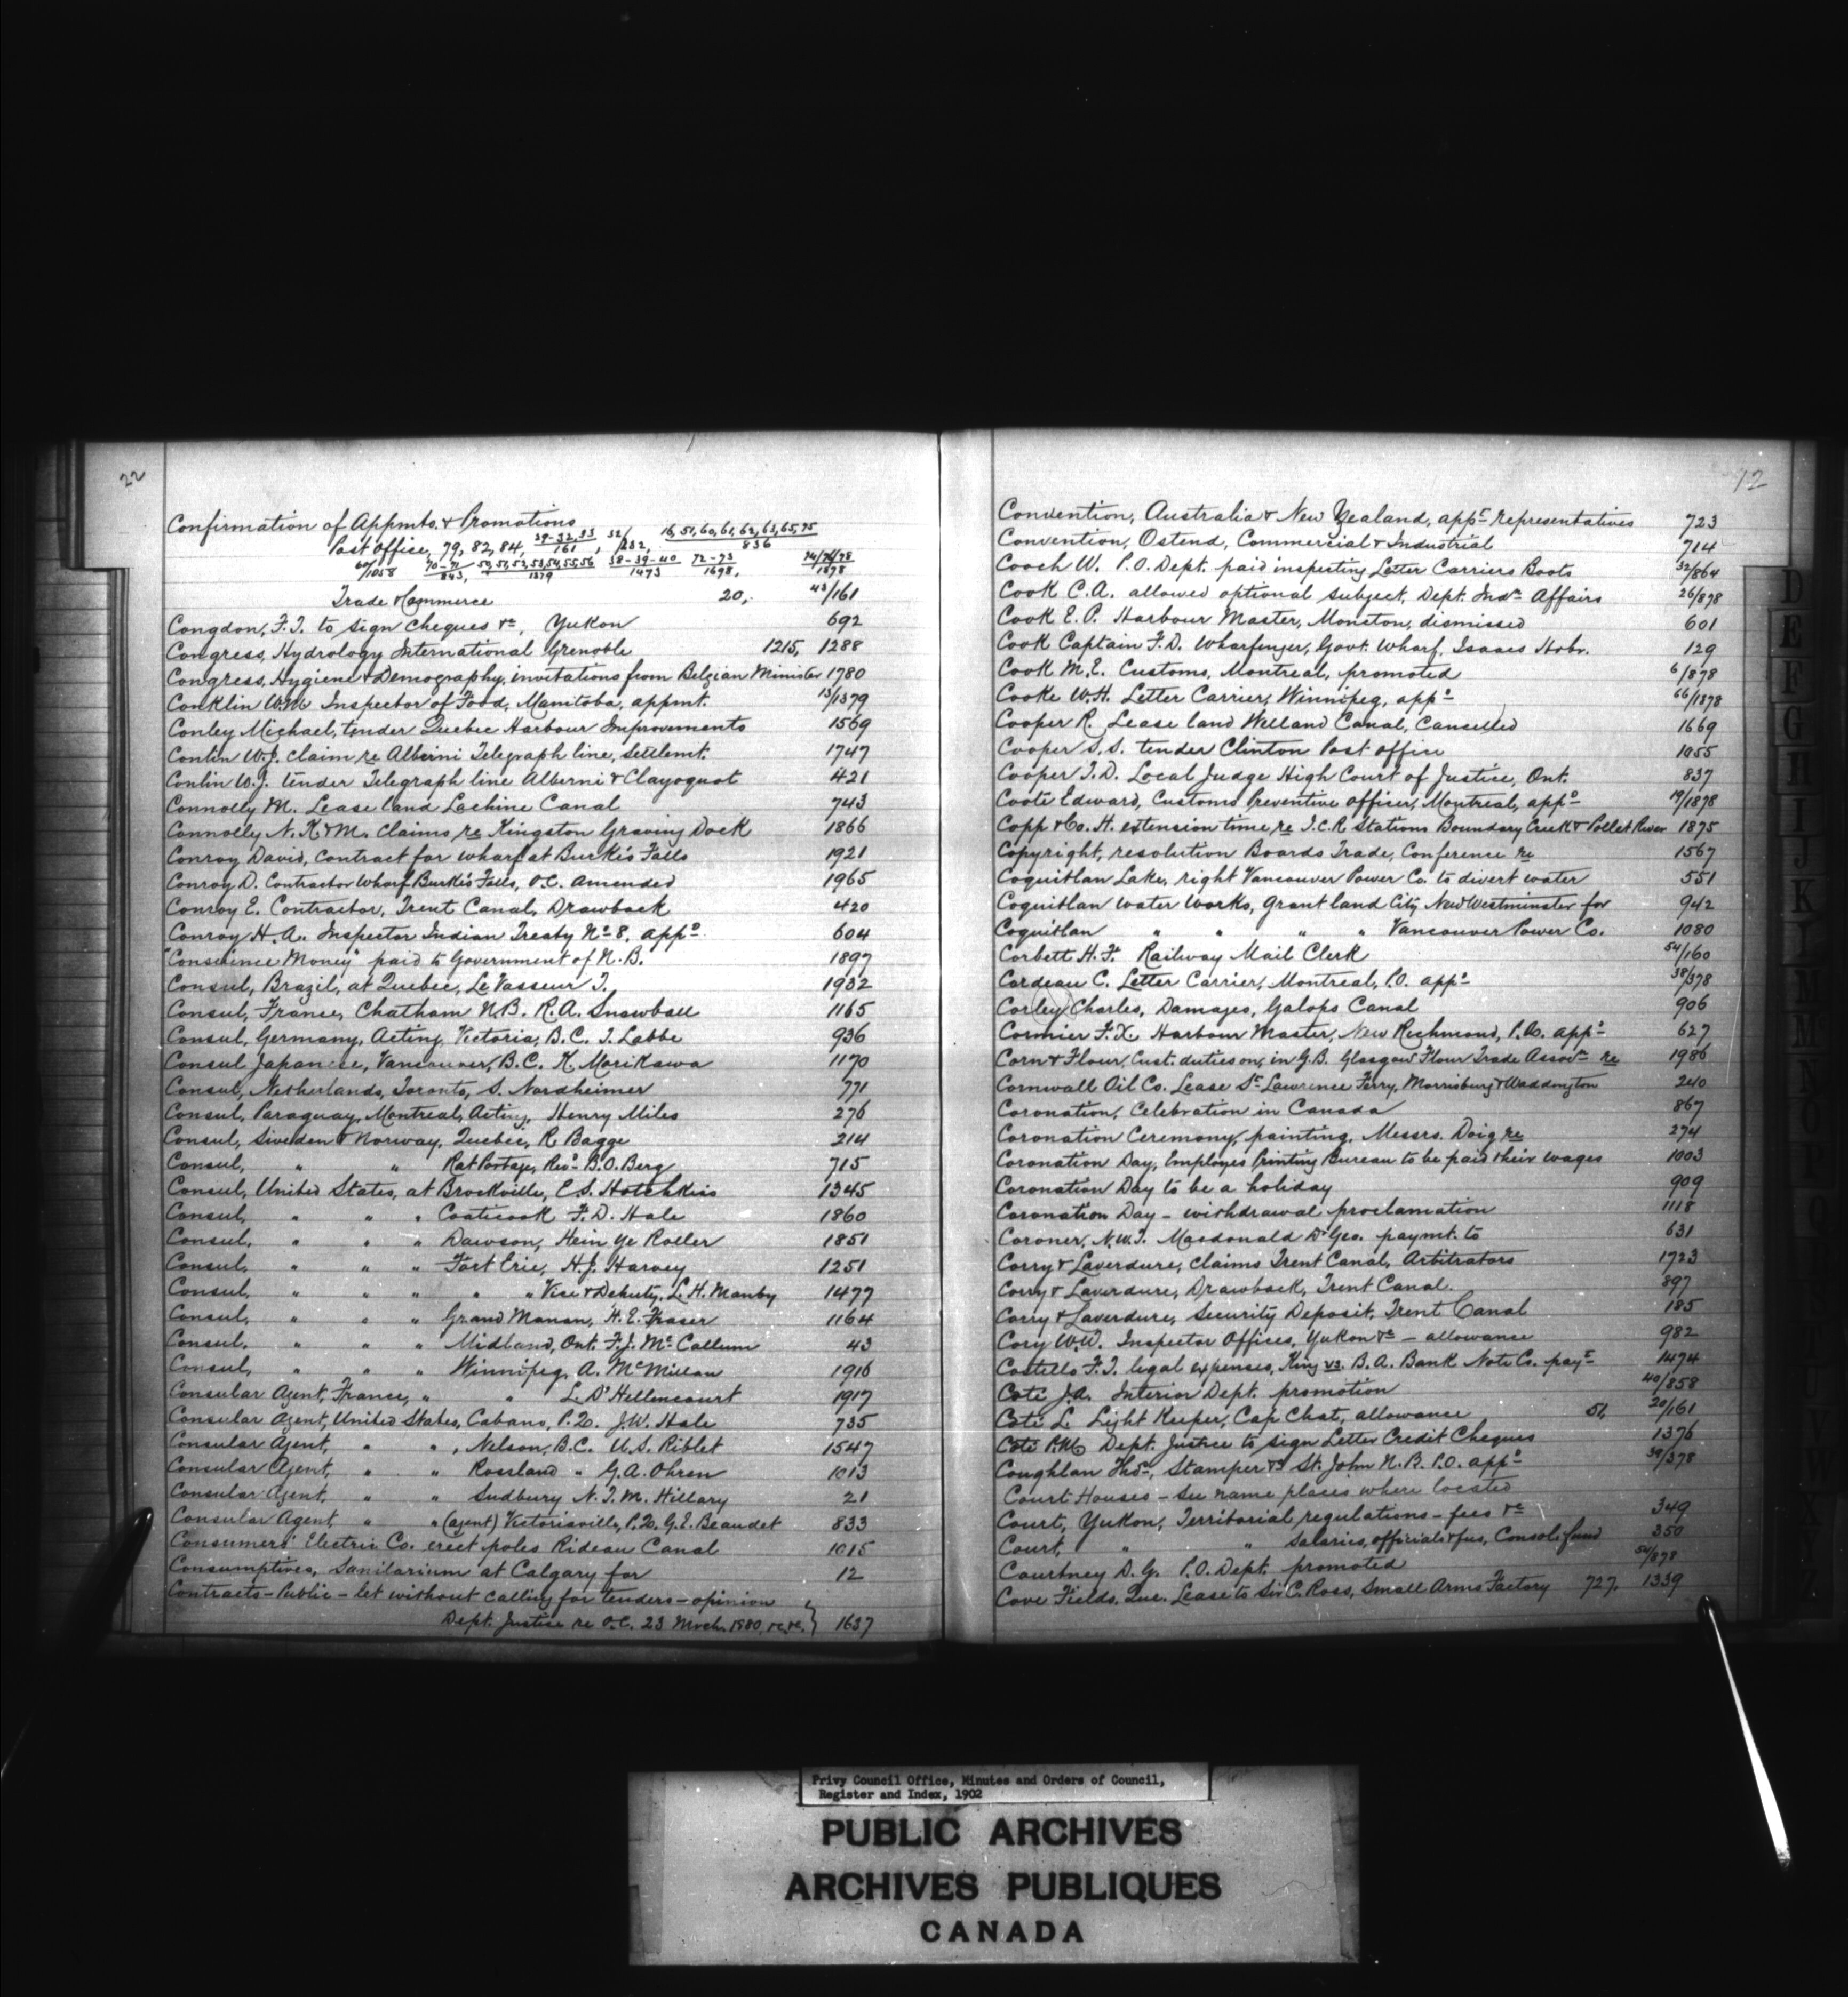 22
Confirmation of Appmts. & Promotions
Post Office, 79, 82, 84, 29-32,33/161, 32/232, 16,51,60,61,62,63,65,75/836
60/1058 70-71/843, 50,51,52,53,54,55,56/1379 38-39-40/1473 72-73/1698, 74/76/78/1878
Trade & Commerce 20, 43/161
Congdon, F.T. to sign cheques &c, Yukon 692
Congress, Hydrology International Grenoble 1215, 1288
Congress, Hygiene & Demography, invitations from Belgian Minister 1780
Conklin W.M. Inspector of Food, Manitoba, appmt. 13/1379
Conley Michael, tender Quebec Harbour Improvements 1569
Conlin W.J. claim re Alberni Telegraph line, settlemt. 1747
Conlin W.J. tender Telegraph line Alberni & Clayoquot 421
Connolly M. Lease land Lachine Canal 743
Connolly N.K. & M. claims re Kingston Graving Dock 1866
Conroy David, contract for wharf at Burk's Falls 1921
Conroy D. Contractor Wharf Burk's Falls, O.C. amended 1965
Conroy E. Contractor, Trent Canal, Drawback 420
Conroy H.A. Inspector Indian Treaty No 8, appd 604
"Conscience Money" paid to Government of N.B. 1897
Consul, Brazil, at Quebec, Le Vasseur T. 1932
Consul, France, Chatham N.B. R.A. Snowball 1165
Consul, Germany, Acting, Victoria, B.C. T. Labbe 936
Consul Japanese, Vancouver, B.C. K. Morikawa 1170
Consul, Netherlands, Toronto, S. Nordheimer 771
Consul, Paraguay, Montreal, Acting, Henry Miles 276
Consul, Sweden & Norway, Quebec, R. Bagge 214
Consul, " " Rat Portage, Revd B.O. Berg 715
Consul, United States, at Brockville, E.S. Hotchkiss 1345
Consul, " " " Coaticook F.D. Hale 1860
Consul, " " " Dawson, Hein Ye Roller 1851
Consul, " " " Fort Erie, H.J. Harvey 1251
Consul, " " " " " Vice & Deputy, L.H. Manby 1477
Consul, " " " Grand Manan, H.E. Fraser 1164
Consul, " " " Midland, Ont. F.J. McCallum 43
Consul, " " " Winnipeg, A. McMillan 1916
Consular Agent, France, " " L. D'Hellencourt 1917
Consular Agent, United States, Cabano, P.Q. J.W. Hale 735
Consular Agent, " ", Nelson, B.C. U.S. Riblet 1547
Consular Agent, " " Rossland " G.A. Ohren 1013
Consular Agent, " " Sudbury N.T.M. Hillary 21
Consular Agent " " (agent) Victoriaville, P.Q. G.E. Beaudet 833
Consumers' Electric Co. erect poles Rideau Canal 1015
Consumptives, Sanitarium at Calgary for 12
Contracts - Public - let without calling for tenders - opinion
Dept. Justice re O.C. 23 March. 1880, re, re. } 1637
12
Convention, Australia & New Zealand, appt representatives 723
Convention, Ostend, Commercial & Industrial 714
Cooch W. P.O. Dept. paid inspecting Letter Carriers Boots 32/864
Cook C.A. allowed optional subject, Dept. Indn Affairs 26/878
Cook E.P. Harbour Master, Moncton, dismissed 601
Cook Captain F.D. Wharfinger, Govt. Wharf, Isaacs Hobr. 129
Cook M.E. Customs, Montreal, promoted 6/878
Cooke W.H. Letter Carrier, Winnipeg, appd 66/1378
Cooper R. Lease land Welland Canal, Cancelled 1669
Cooper S.S. tender Clinton Post office 1055
Cooper T.D. Local Judge High Court of Justice, Ont. 837
Coote Edward, Customs Preventive officer, Montreal, appd 19/1878
Copp & Co. H. extension time, re I.C.R. Stations Boundary Creek & Pollet River 1875
Copyright, resolution Boards Trade, Conference re 1567
Coquitlan Lake, right Vancouver Power Co. to divert water 551
Coquitlan water works, grant land City New Westminster for 942
Coquitlan " " " " Vancouver Power Co. 1080
Corbett H.F. Railway Mail Clerk 54/160
Cordeau C. Letter Carrier, Montreal, P.O. appd 38/378
Corley Charles, Damages, Galops Canal 906
Cormier F.X. Harbour Master, New Richmond, P.Q. appd 627
Corn & Flour, Cust. duties on, in G.B. Glasgow Flour Trade Assocn re 1986
Cornwall Oil Co. Lease St Lawrence Ferry, Morrisburg & Waddington 240
Coronation, Celebration in Canada 867
Coronation Ceremony, painting, Messrs. Doig re 274
Coronation Day, Employes Printing Bureau to be paid their wages 1003
Coronation Day to be a holiday 909
Coronation Day - withdrawal proclamation 1118
Coroner, N.W.T. Macdonald Dr Geo. paymt. to 631
Corry & Laverdure, claims Trent Canal, Arbitrators 1723
Corry & Laverdure, Drawback, Trent Canal. 897
Corry & Laverdure, Security Deposit, Trent Canal 185
Cory W.W. Inspector Offices, Yukon &c - allowance 982
Costello F.T. legal expenses, King vs. B.A. Bank Note Co. payt 1474
Coté J.A. Interior Dept. promotion 40/858
Coté L. Light Keeper, Cap Chat, allowance 51, 20/161
Coté P.M. Dept. Justice to sign Letter Credit Cheques 1376
Coughlan Thos, Stamper &c St. John N.B. P.O. appd 39/378
Court Houses - see name places where located
Court, Yukon, Territorial regulations - fees &c 349
Court, " " salaries, officials & fees, Consoli. fund 350
Courtney D.G. P.O. Dept. promoted 54/878
Cove Fields, Que. Lease to Sir C. Ross, Small Arms Factory 727, 1339
D
E
F
G
J
K
L
Privy Council Office, Minutes and Orders of Council,
Register and Index, 1902
PUBLIC ARCHIVES
ARCHIVES PUBLIQUES
CANADA